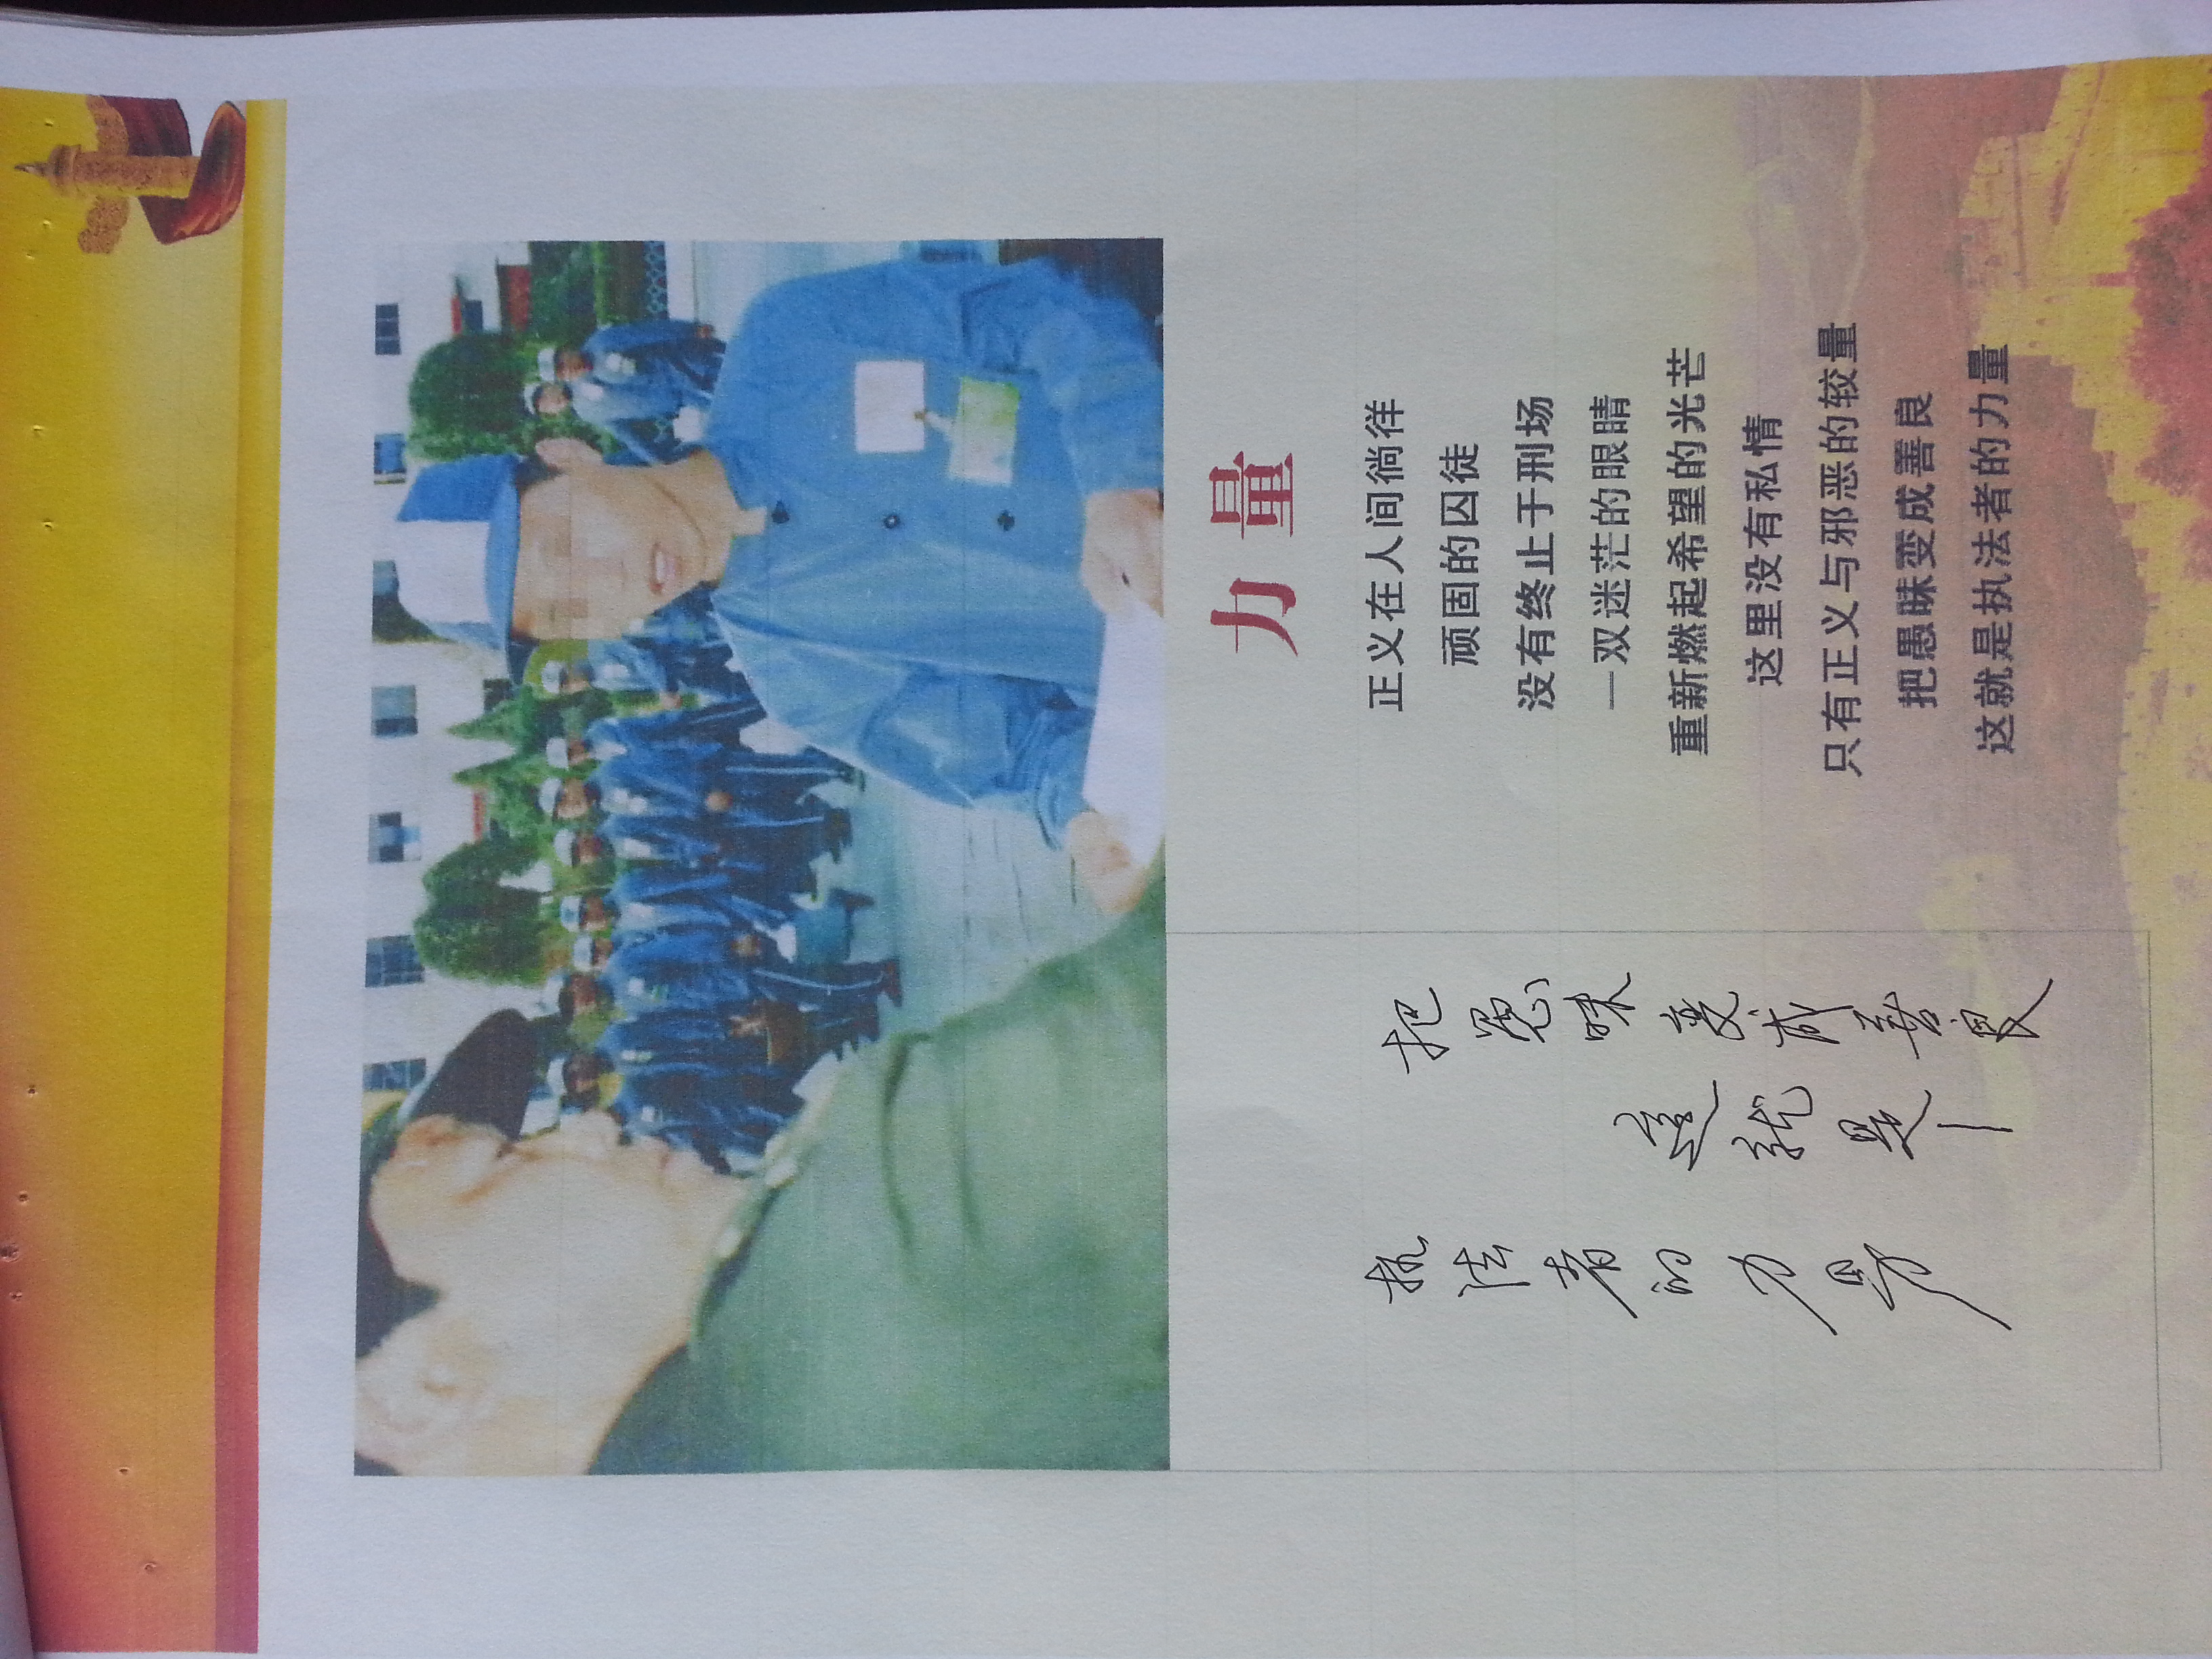 力量
正义在人间徜徉
顽固的囚徒
没有终止于刑场
一双迷茫的眼睛
重新燃起希望的光芒
这里没有私情
只有正义与邪恶的较量
把愚昧变成善良
这就是执法者的力量
把愚昧变成善良
这就是—
执法者的力量